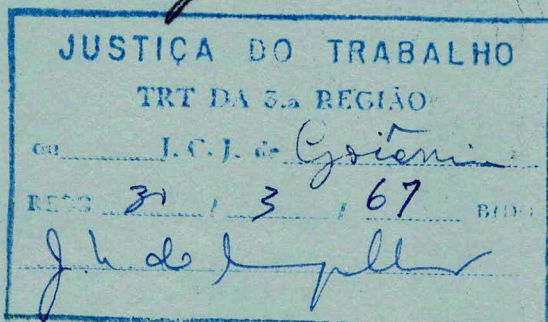 JUSTIÇA DO TRABALHO
TRT DA 3.a REGIÃO
ou J. C. J. de Goiânia
31 / 3 / 67